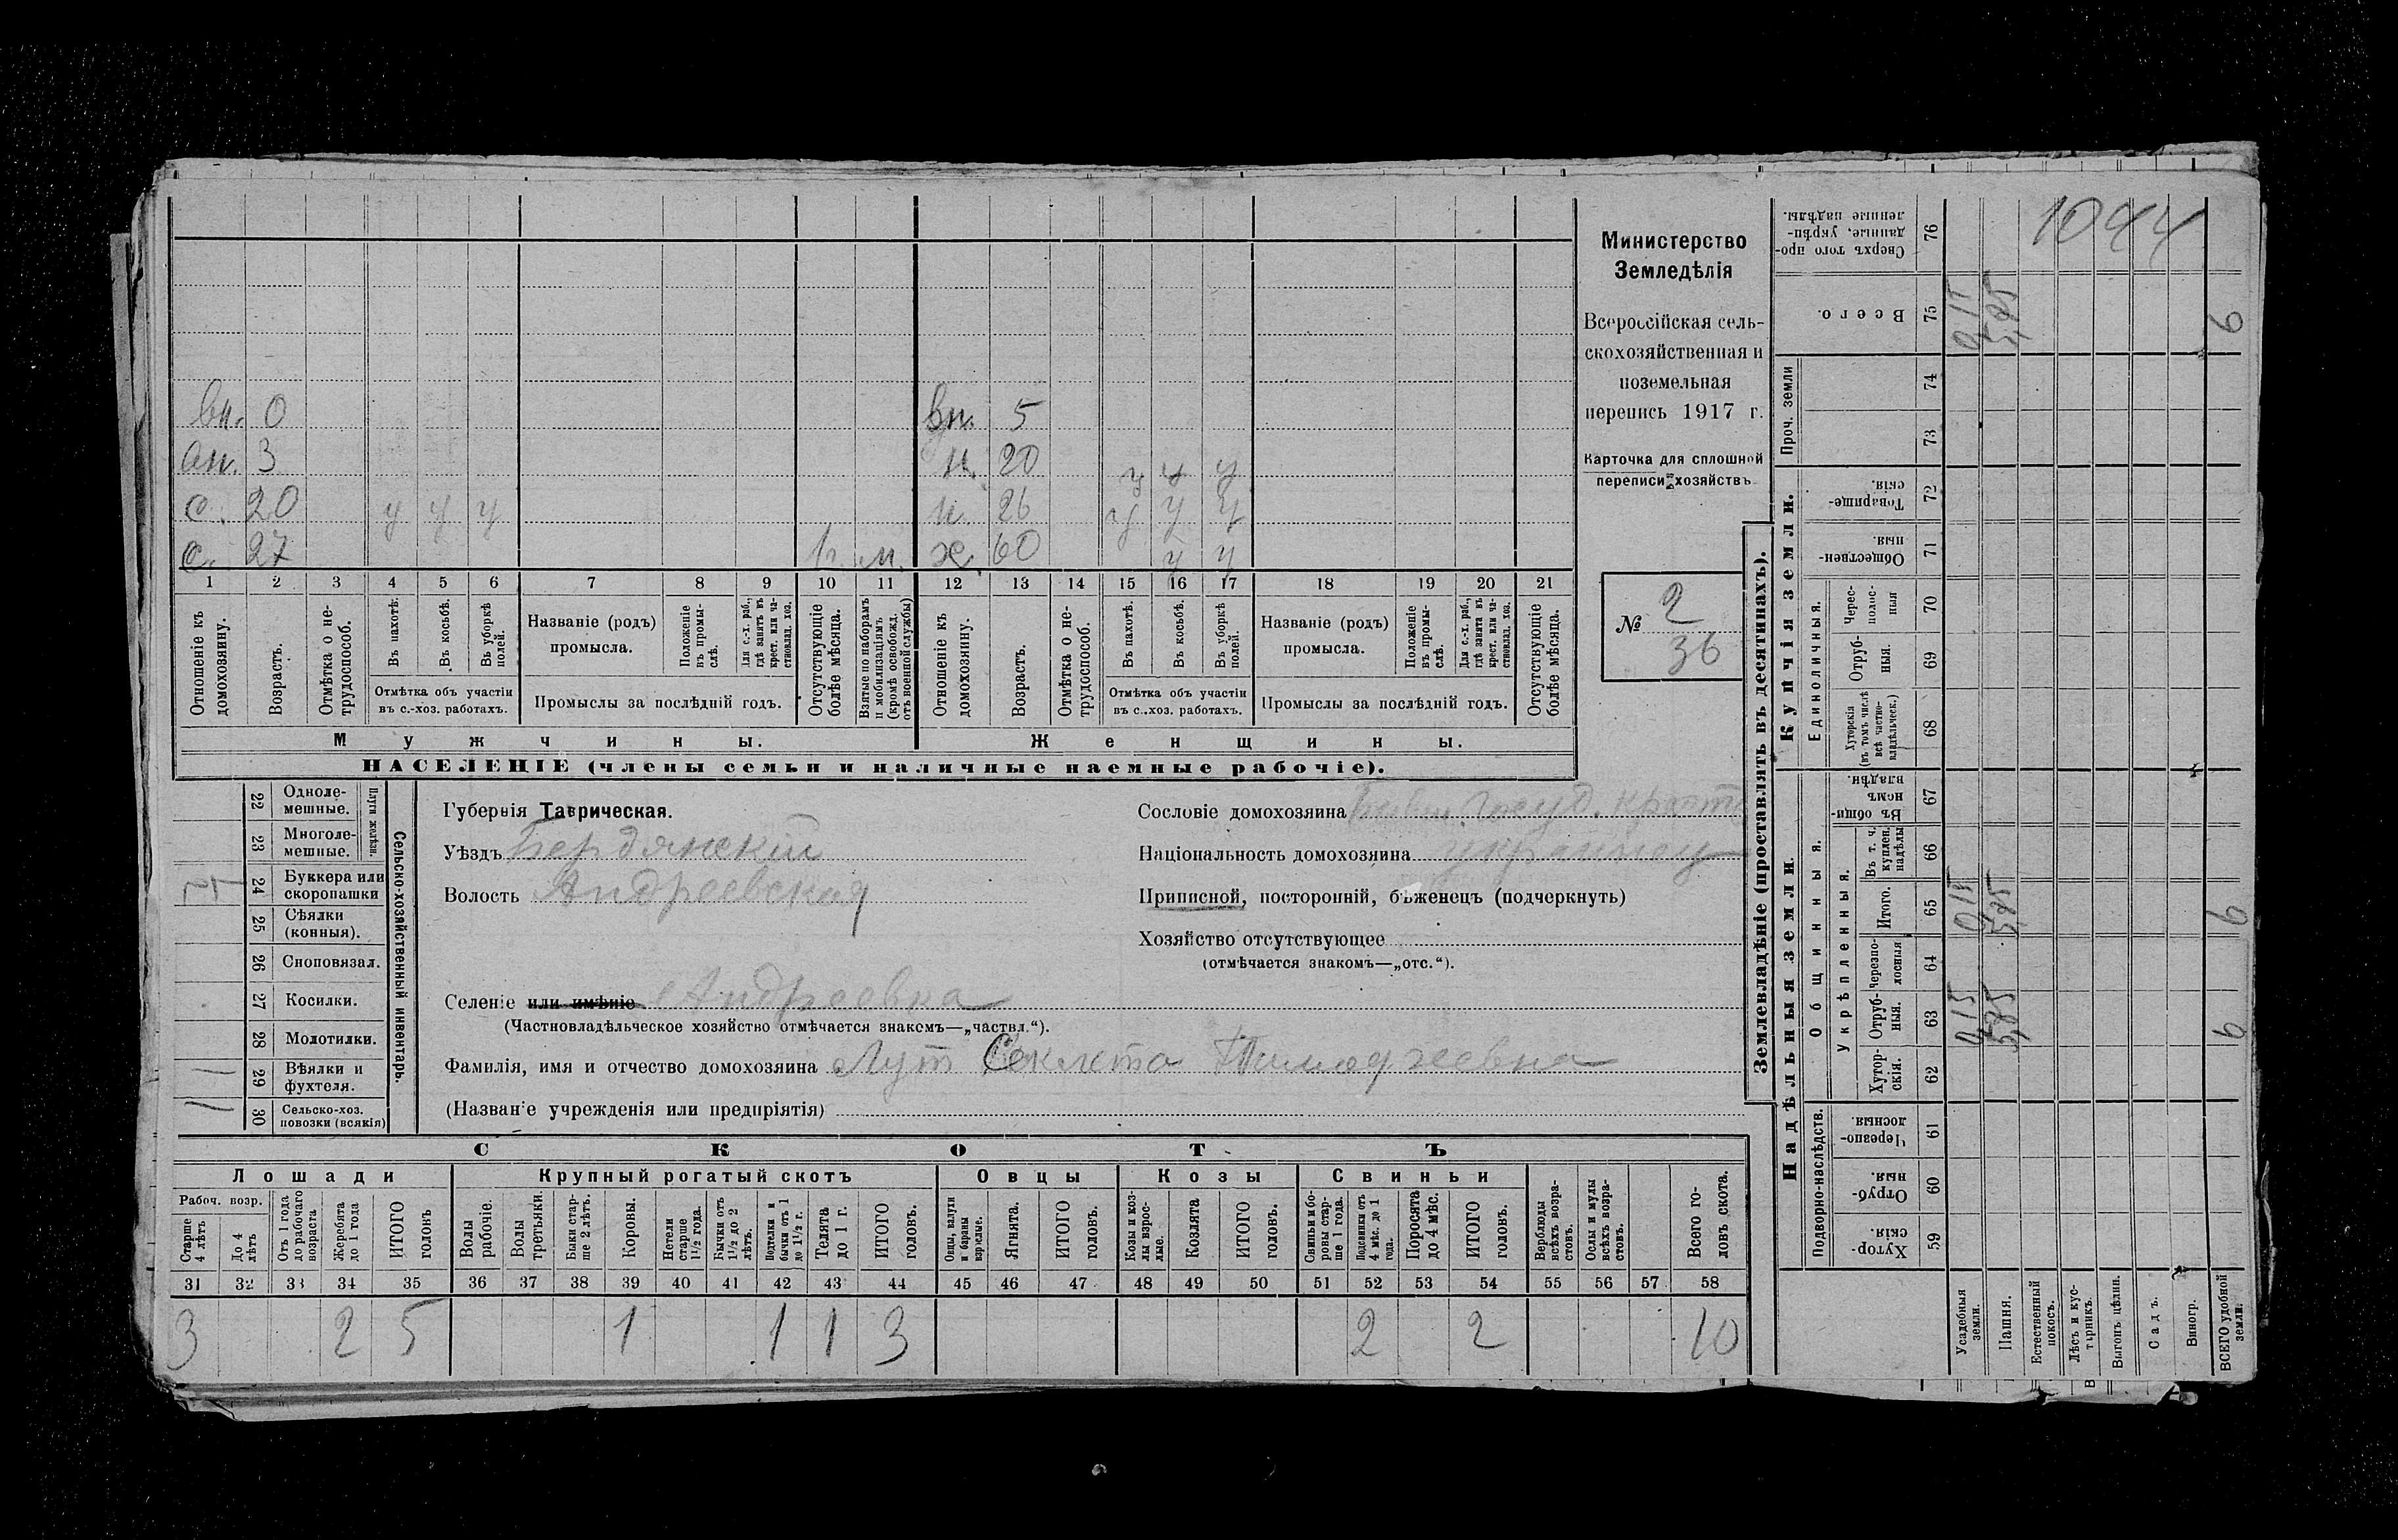 вн. 0 вн. 5
вн. 3 н. 20 у у у
с. 20 у у у н. 26 у у у
с. 27 1 м. х. 60 у у
1 2 3 4 5 6 7 8 9 10 11 12 13 14 15 16 17 18 19 20 21
Отношеніе къ домохозяину.
Возрастъ.
Отмѣтка о не-трудоспособ.
Въ пахотѣ.
Въ косьбѣ.
Въ уборкѣ полей.
Отмѣтка объ участіи
въ с.-хоз. работахъ.
Названіе (родъ)
промысла.
Положеніе въ промы-слѣ.
Для с.-х. раб., гдѣ занятъ въ крест. или ча-стновлад. хоз.
Промыслы за послѣдній годъ.
Отсутствующіе болѣе мѣсяца.
Взятые по наборамъ и мобилизаціямъ (кромѣ освобожд. отъ военной службы)
Отношеніе къ домохозяину.
Возрастъ.
Отмѣтка о не-трудоспособ.
Въ пахотѣ.
Въ косьбѣ.
Въ уборкѣ полей.
Отмѣтка объ участіи
въ с.-хоз. работахъ.
Названіе (родъ)
промысла.
Положеніе въ промы-слѣ.
Для с.-х. раб., гдѣ занята въ крест. или ча-стновлад. хоз.
Промыслы за послѣдній годъ.
Отсутствующіе болѣе мѣсяца.
Мужчины.
Женщины.
НАСЕЛЕНІЕ (члены семьи и наличные наемные рабочіе).
Министерство
Земледѣлія
Всероссійская сель-
скохозяйственная и
поземельная
перепись 1917 г.
Карточка для сплошной
переписи хозяйствъ
№ 2
36
22 Одноле-мешные.
23 Многоле-мешные.
Плуги желѣзн.
24 Буккера или скоропашки 1
25 Сѣялки (конныя).
26 Сноповязал.
27 Косилки.
28 Молотилки.
29 Вѣялки и фухтеля. 1
30 Сельско-хоз. повозки (всякія) 1
Сельско-хозяйственный инвентарь.
Губернія Таврическая.
Уѣздъ Бердянскій
Волость Андреевская
Селеніе или имѣніе Андреевка
(Частновладѣльческое хозяйство отмѣчается знакомъ—„частвл.“).
Фамилія, имя и отчество домохозяина Лут Секлета Тимофеевна
(Названіе учрежденія или предпріятія)
Сословіе домохозяина Бывш. Госуд. крест
Національность домохозяина украинец
Приписной, посторонній, бѣженецъ (подчеркнуть)
Хозяйство отсутствующее
(отмѣчается знакомъ—„отс.“).
СКОТЪ
Лошади Крупный рогатый скотъ Овцы Козы Свиньи
Рабоч. возр.
Старше 4 лѣтъ
До 4 лѣтъ
Отъ 1 года до рабочаго возраста
Жеребята до 1 года
ИТОГО головъ
Волы рабочіе.
Волы третьяки.
Быки стар-ше 2 лѣтъ.
Коровы.
Нетели старше 1½ года.
Бычки отъ 1½ до 2 лѣтъ.
Подтелки и бычки отъ 1 до 1½ г.
Телята до 1 г.
ИТОГО головъ.
Овцы, валухи и бараны взрослые.
Ягнята.
ИТОГО головъ.
Козы и коз-лы взрос-лые.
Козлята
ИТОГО головъ.
Свиньи и бо-ровы стар-ше 1 года.
Подсвинки отъ 4 мѣс. до 1 года.
Поросята до 4 мѣс.
ИТОГО головъ.
Верблюды всѣхъ возра-стовъ.
Ослы и мулы всѣхъ возра-стовъ.
Всего го-ловъ скота.
31 32 33 34 35 36 37 38 39 40 41 42 43 44 45 46 47 48 49 50 51 52 53 54 55 56 57 58
3 2 5 1 1 1 3 2 2 10
Землевладѣніе (проставлять въ десятинахъ).
Купчія земли.
Надѣльныя земли.
Сверхъ того про-данные, укрѣп-ленные надѣлы. 76
1044
Всего. 75 0,15 5,85 6
Проч. земли 74
73
Товарище-скія. 72
Обществен-ныя. 71
Единоличныя.
Черес-полос-ныя 70
Отруб-ныя. 69
Хуторскія (въ томъ числѣ всѣ частно-владѣльческ.) 68
Общинныя.
Въ общин-номъ владѣн. 67
Укрѣпленныя.
Въ т. ч. куплен. надѣлы 66
Итого. 65 0,15 5,85 6
Черезпо-лосныя 64
Отруб-ныя. 63 0,15 5,85 6
Хутор-скія. 62
Подворно-наслѣдств.
Черезпо-лосныя. 61
Отруб-ныя. 60
Хутор-скія. 59
Усадебныя земли.
Пашня.
Естественный покосъ.
Лѣсъ и кус-тарникъ.
Выгонъ цѣлин.
Садъ.
Виногр.
ВСЕГО удобной земли.